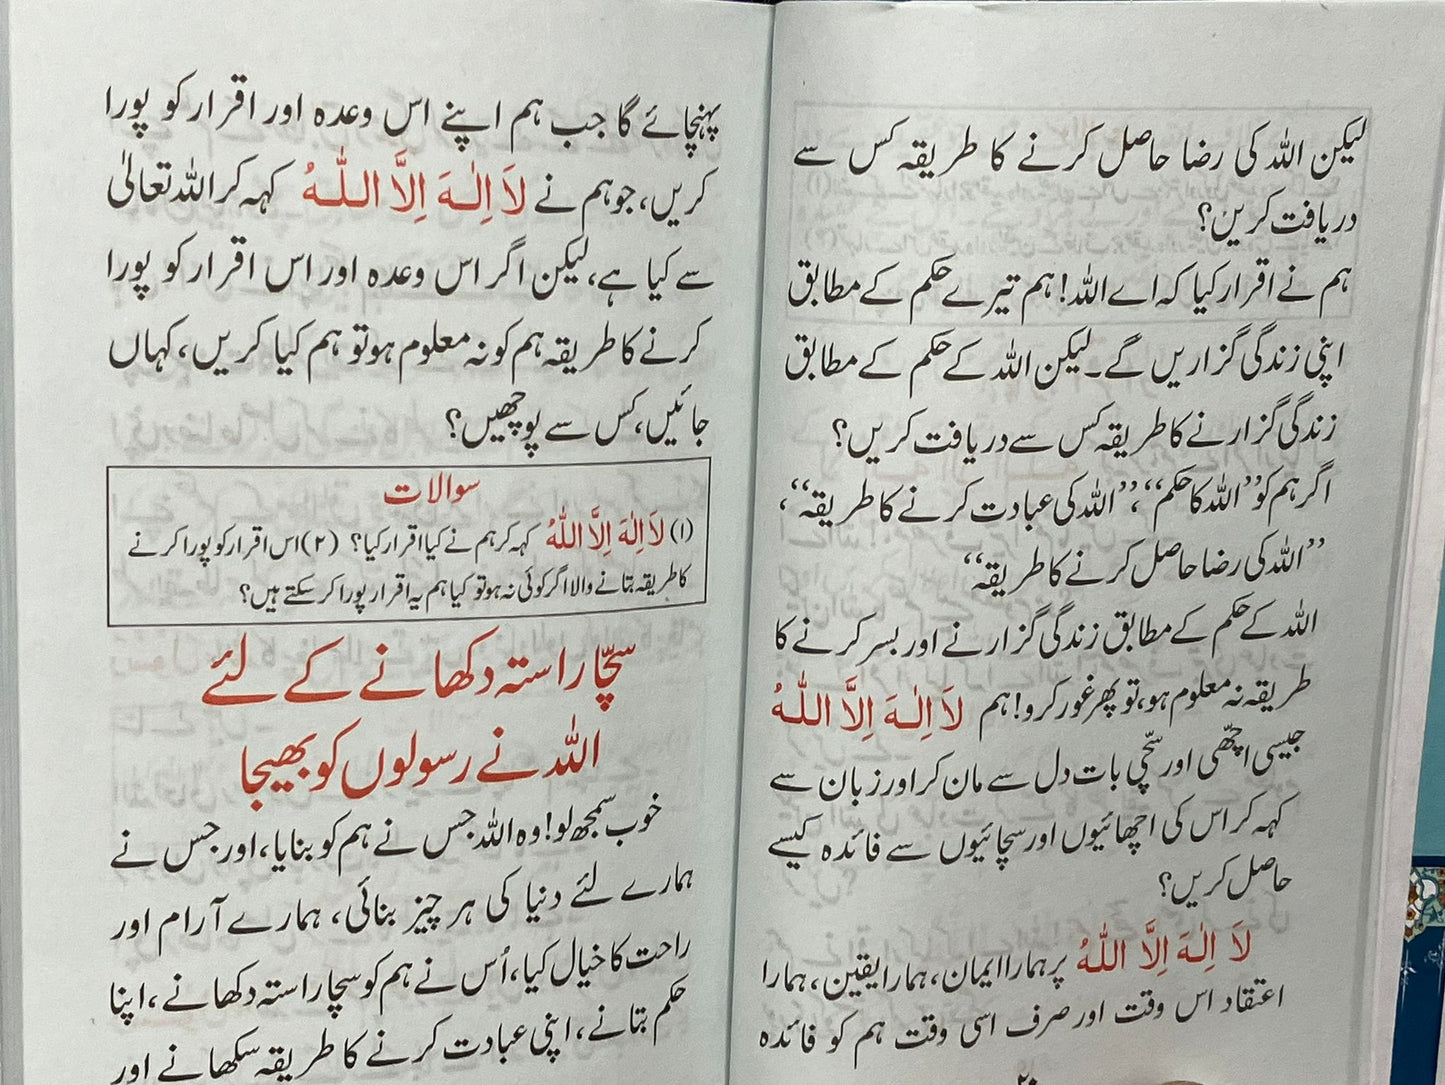 لیکن اللہ کی رضا حاصل کرنے کا طریقہ کس سے
دریافت کریں؟
ہم نے اقرار کیا کہ اے اللہ! ہم تیرے حکم کے مطابق
اپنی زندگی گزاریں گے۔ لیکن اللہ کے حکم کے مطابق
زندگی گزارنے کا طریقہ کس سے دریافت کریں؟
اگر ہم کو ’’اللہ کا حکم‘‘، ’’اللہ کی عبادت کرنے کا طریقہ‘‘،
’’اللہ کی رضا حاصل کرنے کا طریقہ‘‘
اللہ کے حکم کے مطابق زندگی گزارنے اور بسر کرنے کا
طریقہ نہ معلوم ہو، تو پھر غور کرو! ہم لَا اِلٰہَ اِلَّا اللّٰہُ
جیسی اچھّی اور سچّی بات دل سے مان کر اور زبان سے
کہہ کر اس کی اچھائیوں اور سچائیوں سے فائدہ کیسے
حاصل کریں؟
لَا اِلٰہَ اِلَّا اللّٰہُ پر ہمارا ایمان، ہمارا یقین، ہمارا
اعتقاد اس وقت اور صرف اسی وقت ہم کو فائدہ
۲۰
پہنچائے گا جب ہم اپنے اس وعدہ اور اقرار کو پورا
کریں، جو ہم نے لَا اِلٰہَ اِلَّا اللّٰہُ کہہ کر اللہ تعالیٰ
سے کیا ہے، لیکن اگر اس وعدہ اور اس اقرار کو پورا
کرنے کا طریقہ ہم کو نہ معلوم ہو تو ہم کیا کریں، کہاں
جائیں، کس سے پوچھیں؟
سوالات
(۱) لَا اِلٰہَ اِلَّا اللّٰہُ کہہ کر ہم نے کیا اقرار کیا؟ (۲) اس اقرار کو پورا کرنے
کا طریقہ بتانے والا اگر کوئی نہ ہو تو کیا ہم یہ اقرار پورا کر سکتے ہیں؟
سچّا راستہ دکھانے کے لئے
اللہ نے رسولوں کو بھیجا
خوب سمجھ لو! وہ اللہ جس نے ہم کو بنایا، اور جس نے
ہمارے لئے دنیا کی ہر چیز بنائی، ہمارے آرام اور
راحت کا خیال کیا، اُس نے ہم کو سچا راستہ دکھانے، اپنا
حکم بتانے، اپنی عبادت کرنے کا طریقہ سکھانے اور